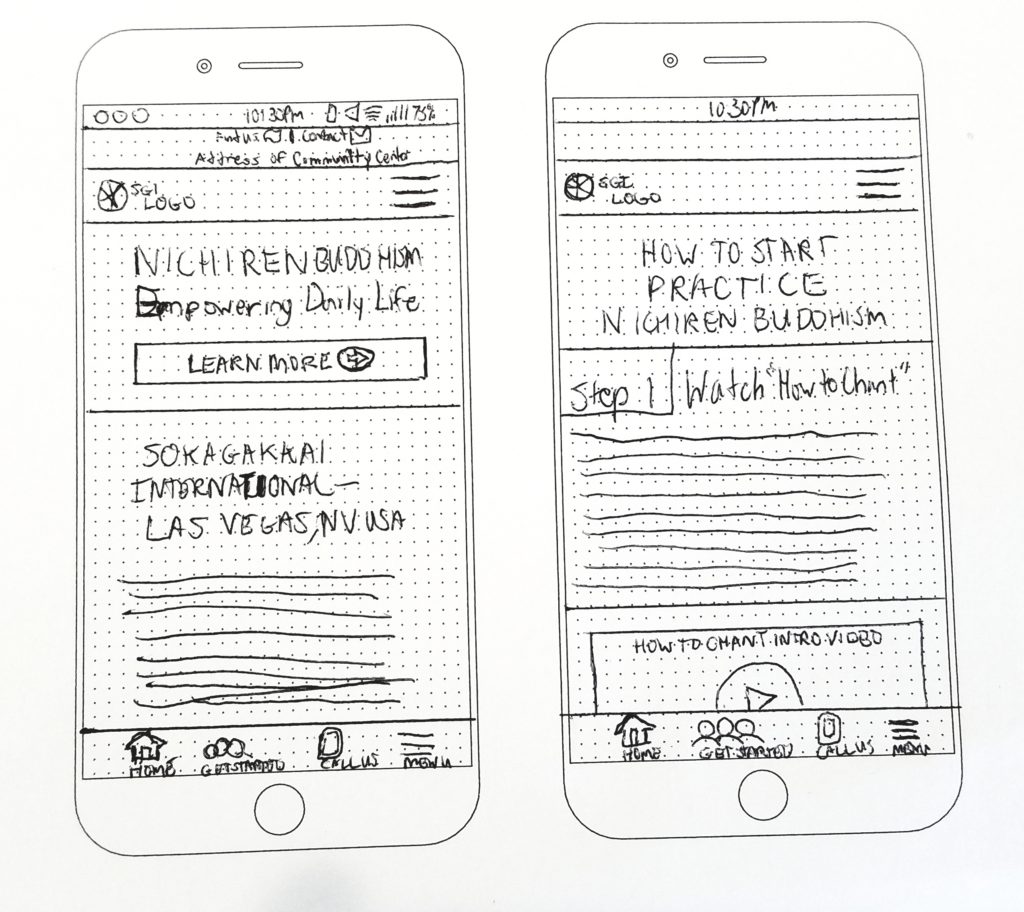 10:30pm 75%
Find us Contact
Address of Community Center
SGI
LOGO
NICHIREN BUDDHISM
Empowering Daily Life
LEARN MORE
SOKA GAKKAI
INTERNATIONAL—
LAS VEGAS, NV USA
HOME GET STARTED CALL US MENU
10:30pm
SGI
LOGO
HOW TO START
PRACTICE
NICHIREN BUDDHISM
Step 1 Watch "How to Chant"
HOW TO CHANT INTRO VIDEO
HOME GET STARTED CALL US MENU